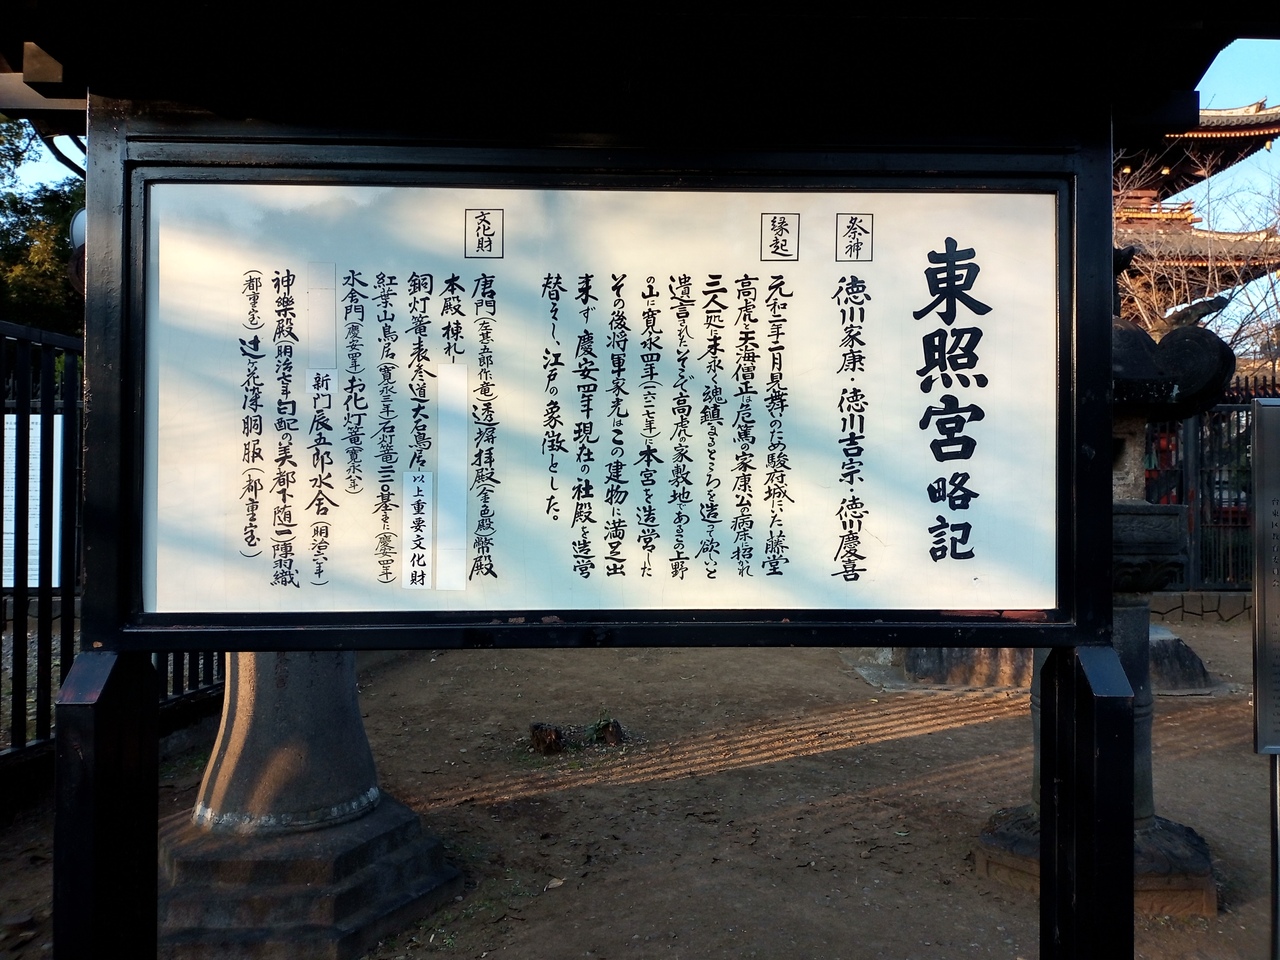 東照宮略記
祭神
徳川家康・徳川吉宗・徳川慶喜
縁起
元和二年二月見舞のため駿府城にいた藤堂
高虎と天海僧正は危篤の家康公の病床に招かれ
三人一処に末永く魂鎮まるところを造って欲いと
遺言された。そこで高虎の家敷地であるこの上野
の山に寛永四年(一六二七年)に本宮を造営した
その後将軍家光はこの建物に満足出
来ず慶安四年現在の社殿を造営
替えをし、江戸の象徴とした。
文化財
唐門(左甚五郎作竜)透塀拝殿(金色殿)幣殿
本殿棟札
銅灯篭表参道大石鳥居以上重要文化財
紅葉山鳥居(寛永三年)石灯篭二二〇基(慶安四年)
水舎門(慶安四年)お化灯篭(寛永八年)
新門辰五郎水舎(明治六年)
神樂殿(明治七年)勾配の美都下随一陣羽織
(都重宝)辻が花染胴服(都重宝)